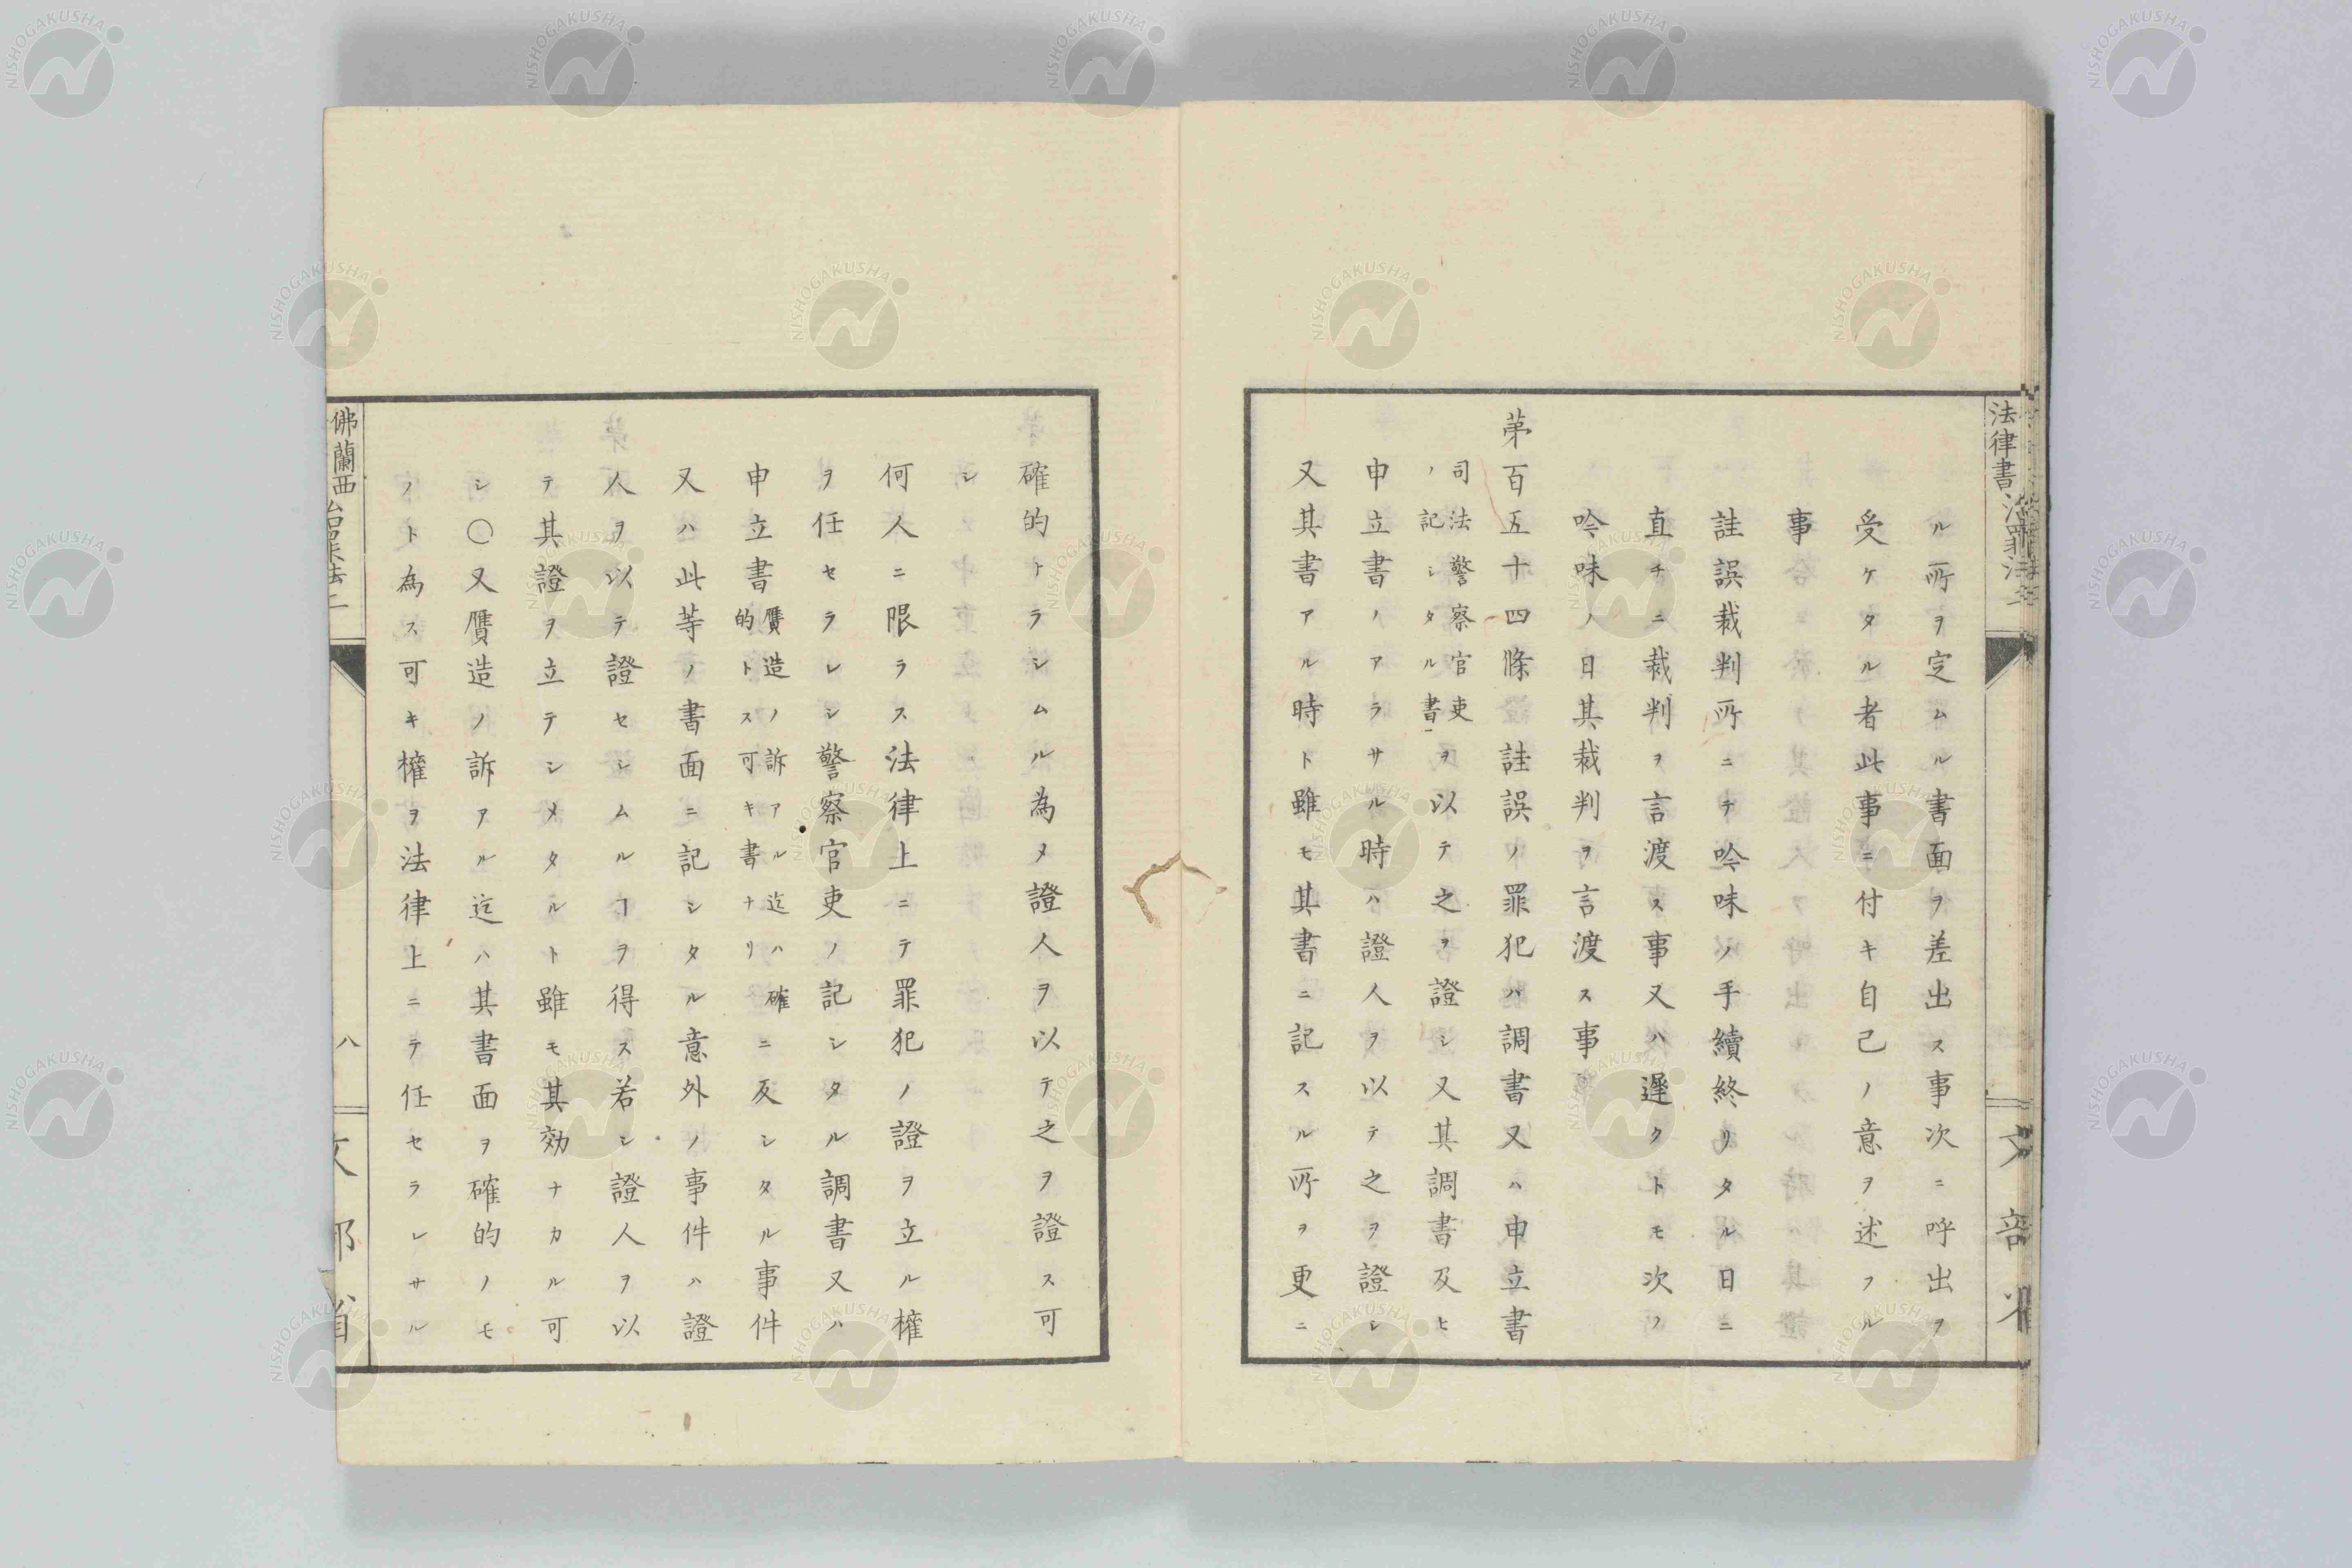 ル所ヲ定ムル書面ヲ差出ス事次ニ呼出ヲ
受ケタル者此事ニ付キ自己ノ意ヲ述フル
事
詿誤裁判所ニテ吟味ノ手續終リタル日ニ
直チニ裁判ヲ言渡ス事又ハ遲クトモ次ノ
吟味ノ日其裁判ヲ言渡ス事
苐百五十四條 詿誤ノ罪犯ハ調書又ハ申立書
司法警察官吏
ノ記シタル書
ヲ以テ之ヲ證シ又其調書及ヒ
申立書ノアラサル時ハ證人ヲ以テ之ヲ證シ
又其書アル時ト雖モ其書ニ記スル所ヲ更ニ
確的ナラシムル為メ證人ヲ以テ之ヲ證ス可
シ
何人ニ限ラス法律上ニテ罪犯ノ證ヲ立ル權
ヲ任セラレシ警察官吏ノ記シタル調書又ハ
申立書
贋造ノ訴アル迄ハ確
的トス可キ書ナリ
ニ反シタル事件
又ハ此等ノ書面ニ記シタル意外ノ事件ハ證
人ヲ以テ證セシムルヿヲ得ス若シ證人ヲ以
テ其證ヲ立テシメタルト雖モ其効ナカル可
シ〇又贋造ノ訴アル迄ハ其書面ヲ確的ノモ
ノト為ス可キ權ヲ法律上ニテ任セラレサル
佛蘭西
八
法律書
NISHOGAKUSHA